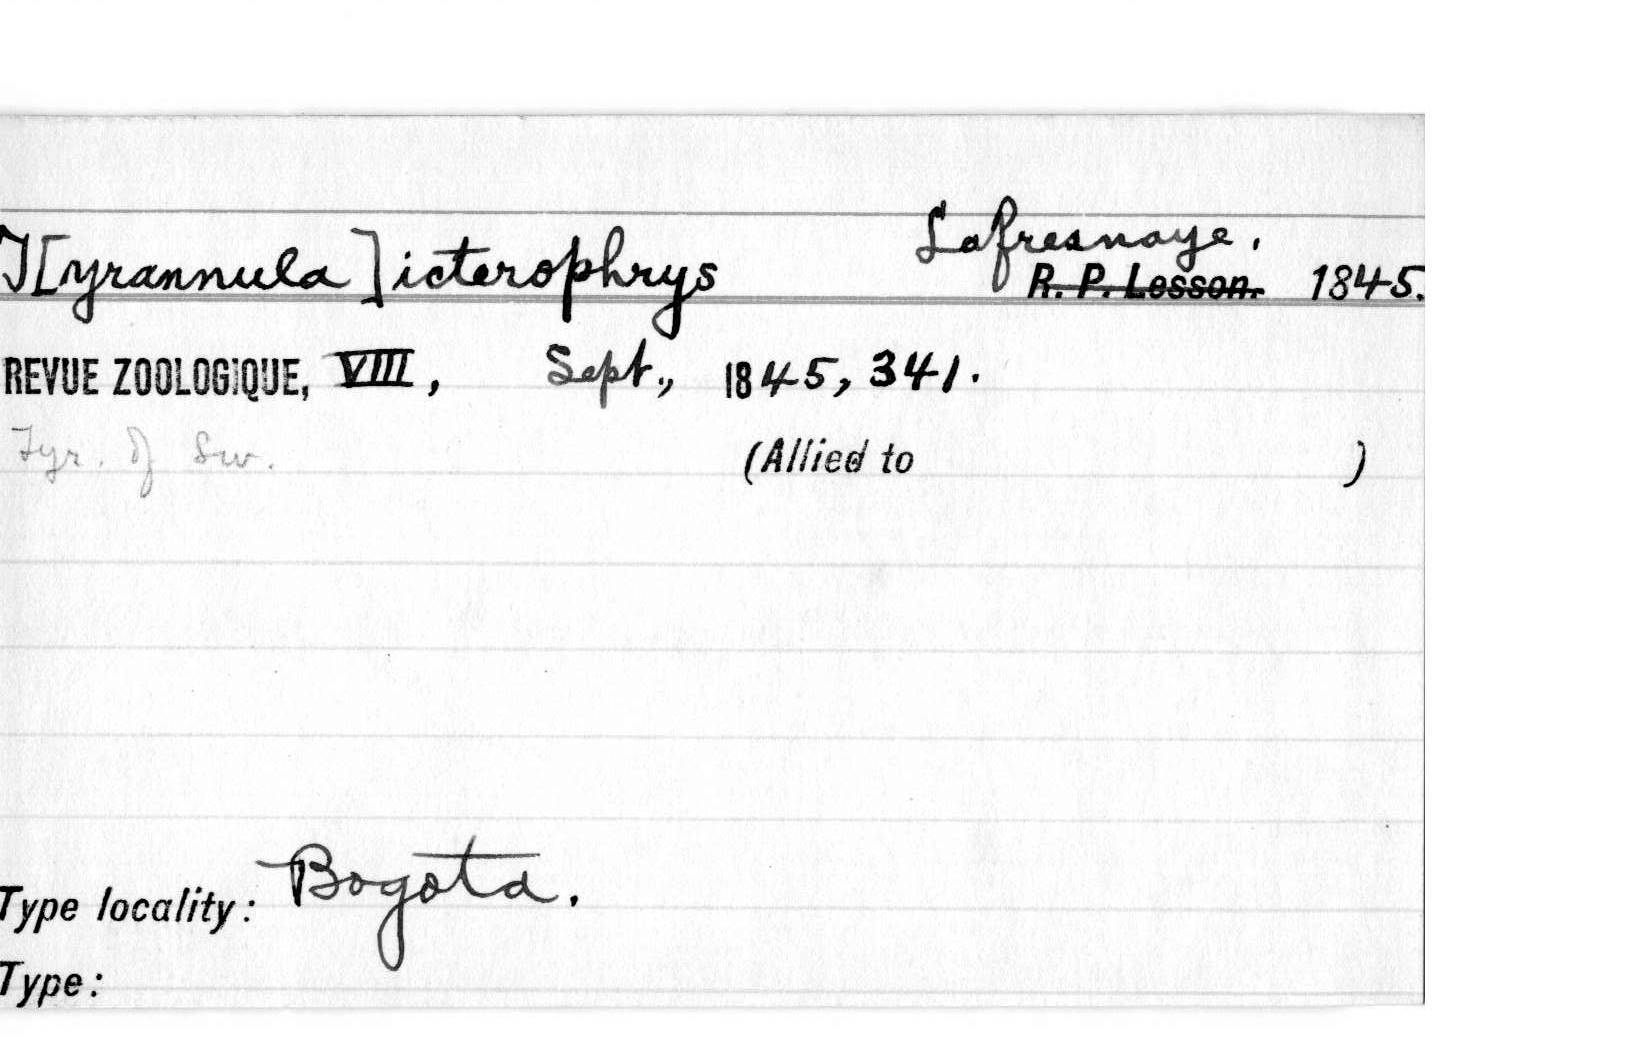 T[yrannula] icterophrys Lafresnaye.
R. P. Lesson. 1845.
REVUE ZOOLOGIQUE, VIII, Sept., 1845, 341.
Tyr. of Sw. (Allied to )
Type locality: Bogota.
Type: